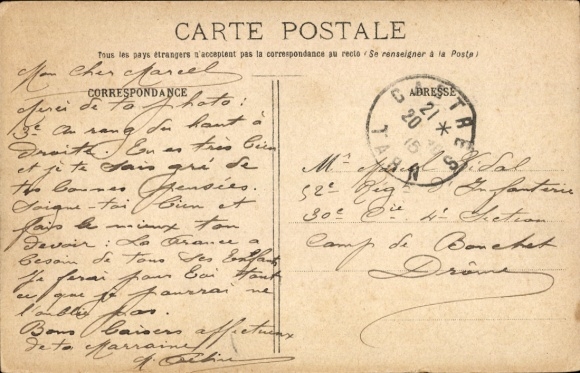 CARTE POSTALE
Tous les pays étrangers n'acceptent pas la correspondance au recto (Se renseigner à la Poste)
CORRESPONDANCE
Mon Cher Marcel
Merci de ta photo :
3e au rang du haut à
droite. En es très bien
et je te sais gré de
tes bonnes pensées.
Soigne-toi bien et
fais le mieux ton
devoir : La France a
besoin de tous ses enfants
Je ferai pour toi tout
ce que je pourrai ne
l'oublie pas.
Bons baisers affectueux
de ta Marraine
ADRESSE
CASTRES
21 *
20
15
TARN
Mr Marcel Vidal
52e Régt d'Infanterie
30e Cie 4e Section
Camp de Bouchet
Drôme